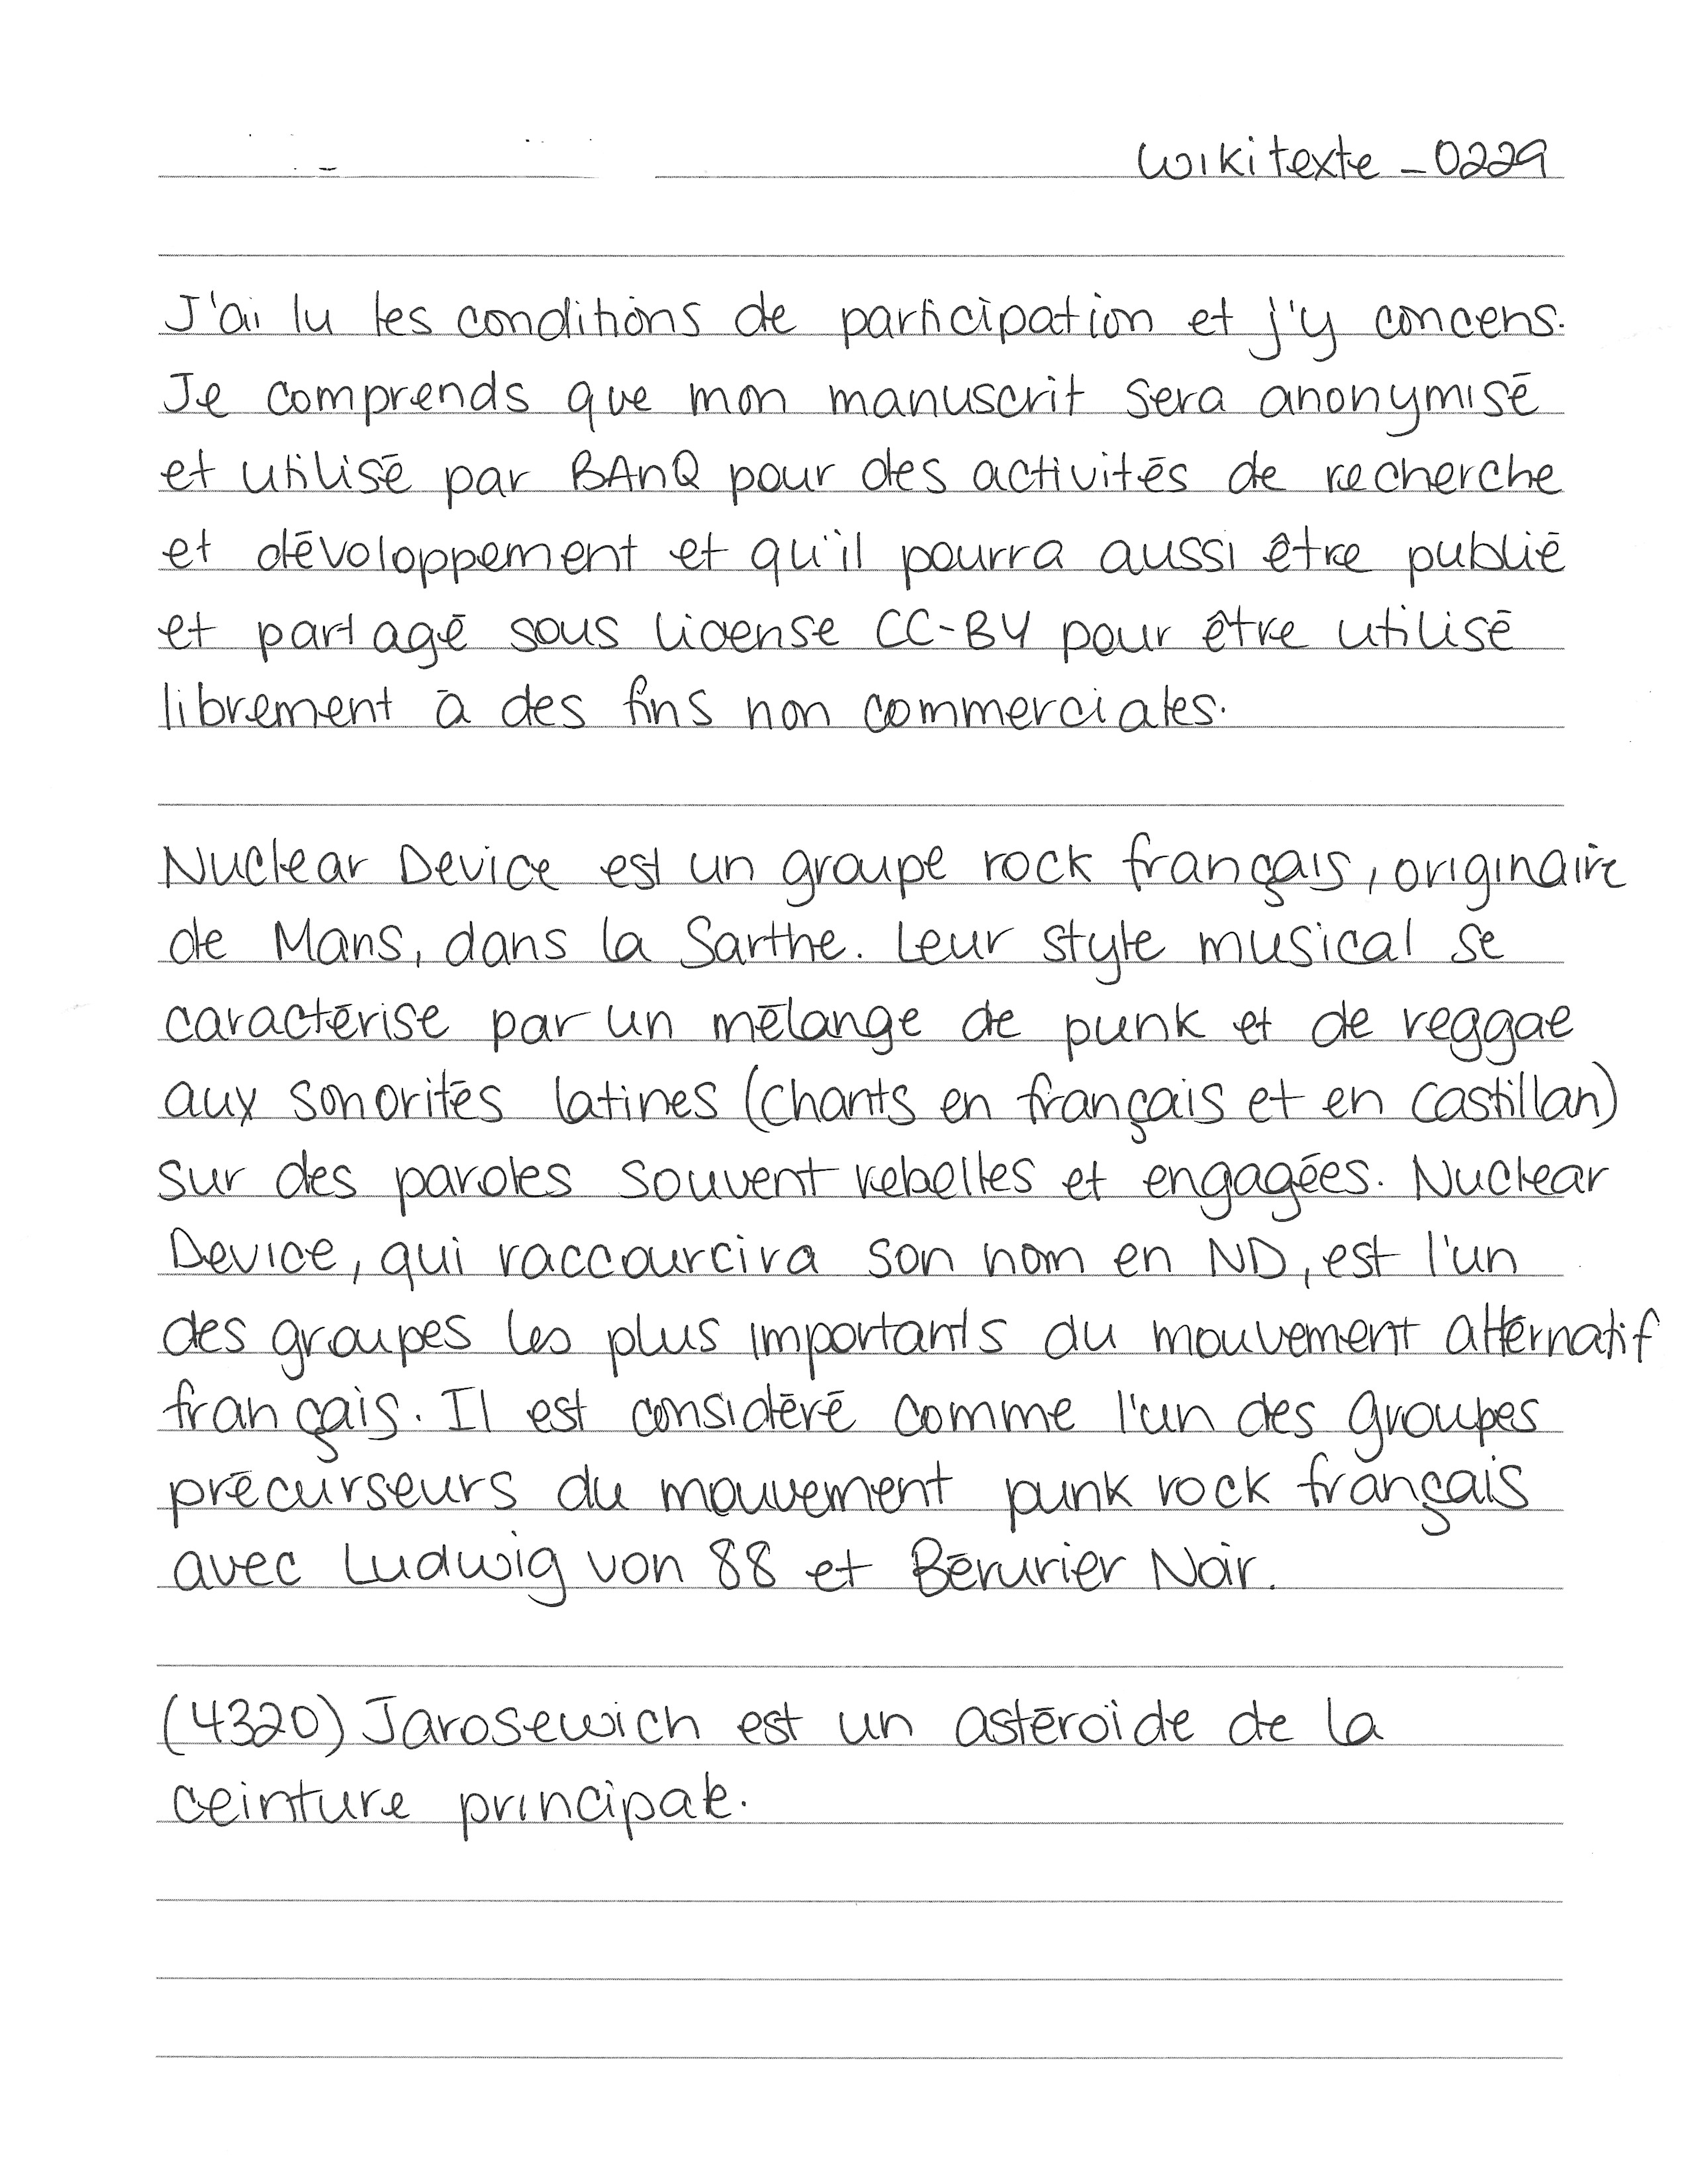 Wikitexte_0229
J'ai lu les conditions de participation et j'y concens.
Je comprends que mon manuscrit sera anonymisé
et utilisé par BAnQ pour des activités de recherche
et dévoloppement et qu'il pourra aussi être publié
et partagé sous license CC-BY pour être utilisé
librement à des fins non commerciales.
Nuclear Device est un groupe rock français, originaire
de Mans, dans la Sarthe. Leur style musical se
caractérise par un mélange de punk et de reggae
aux sonorités latines (chants en français et en castillan)
sur des paroles souvent rebelles et engagées. Nuclear
Device, qui raccourcira son nom en ND, est l'un
des groupes les plus importants du mouvement alternatif
français. Il est considéré comme l'un des groupes
précurseurs du mouvement punk rock français
avec Ludwig von 88 et Bérurier Noir.
(4320) Jarosewich est un astéroïde de la
ceinture principale.